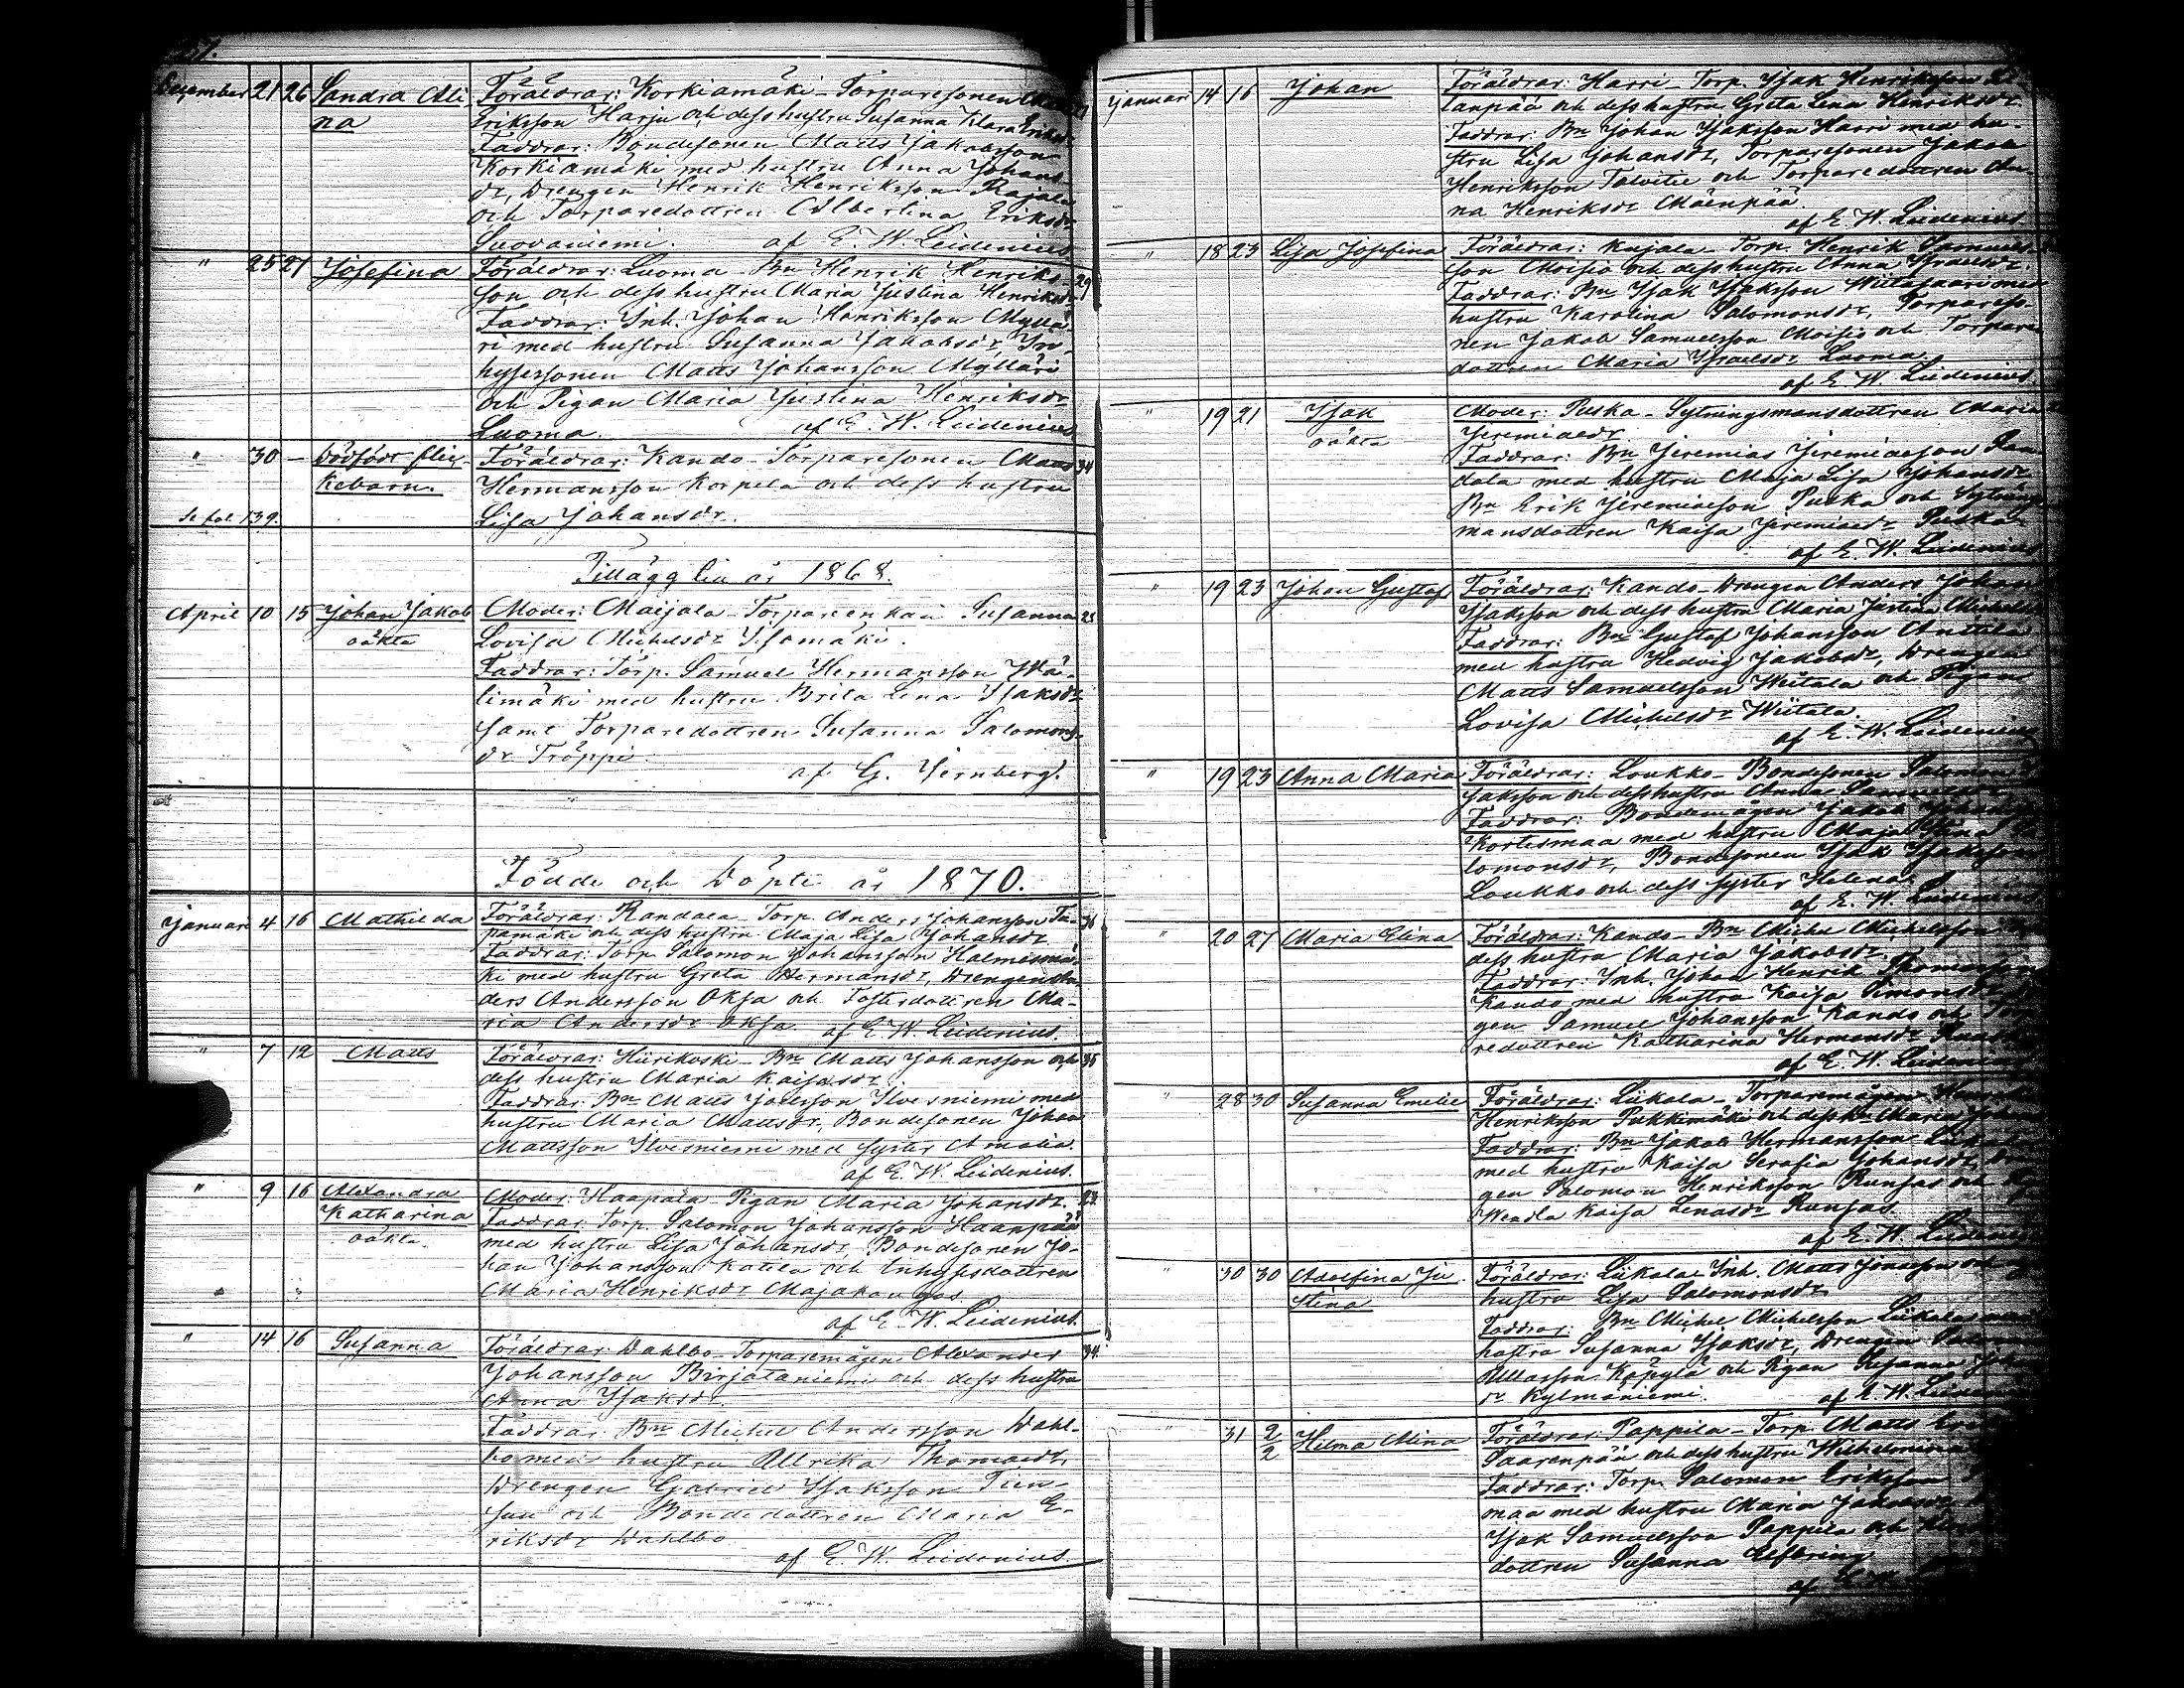 57.
December 21 26 Sandra Ali- Föräldrar: Korkiamäki - Torparesonen Matts 21
na Eriksson Harju och dess hustru Susanna Klara Eriksdr
Faddrar: Bondesonen Matts Jakobsson
Korkiamäki med hustru Anna Johans-
dr, Drengen Henrik Henriksson Rajala
och Torparedottren Albertina Eriksdr
Luovaniemi. af E. W. Leidenius.
" 25 27 Josefina Föräldrar: Luoma - Bn Henrik Henriks- 29
son och dess hustru Maria Justina Henriksdr
Faddrar: Inh. Johan Henriksson Myllä-
ri med hustru Susanna Jakobsdr, In-
hysesonen Matts Johansson Mylläri
och Pigan Maria Justina Henriksdr
Luoma. af E. W. Leidenius
" 30 - Dödfödt flic- Föräldrar: Kando - Torparesonen Matts 34
kebarn. Hermansson Korpela och dess hustru
Se fol. 139. Lisa Johansdr.
Tillägg liu år 1868.
April 10 15 Johan Jakob Moder: Maijala - Torpareenkan Susanna 25
oäkta Lovisa Michelsdr Isomäki.
Faddrar: Torp. Samuel Hermansson Wä-
limäki med hustru Brita Lena Isaksdr
samt Torparedottren Susanna Salomons-
dr Tröppi.
af G. Jernberg.
Födde och Döpte år 1870.
Januari 4 16 Mathilda Föräldrar: Randala - Torp. Anders Johansson Ta- 36
pamäki och dess hustru Maja Lisa Johansdr
Faddrar: Torp. Salomon Johansson Halmesmä-
ki med hustru Greta Hermansdr, Drengen An-
ders Andersson Oksa och Fosterdottren Ma-
ria Andersdr Oksa. af E. W. Leidenius.
" 7 12 Matts Föräldrar: Hiirikoski - Bn Matts Johansson och 35
dess hustru Maria Kaisasdr
Faddrar: Bn Matts Joelsson Ilvesniemi med
hustru Maria Mattsdr, Bondesonen Johan
Mattsson Ilvesniemi med syster Amalia.
af E. W. Leidenius.
" 9 16 Alexandra Moder: Haapala - Pigan Maria Johansdr. 23
Katharina Faddrar: Torp. Salomon Johansson Haanpää
oäkta. med hustru Lisa Johansdr, Bondesonen Jo-
han Johansson Katila och Inhysisdottren
Maria Henriksdr Majakangas.
af E. W. Leidenius.
" 14 16 Susanna Föräldrar: Dahlbo - Torparemågen Alexander 34.
Johansson Pirjätaniemi och dess hustru
Anna Isaksdr.
Faddrar: Bn Michel Andersson Dahl-
bo med hustru Ullrika Thomasdr,
Drengen Gabriel Isaksson Tien-
suu och Bondedottren Maria E-
riksdr Dahlbo
af E. W. Leidenius.
Januari 14 16 Johan Föräldrar: Harri - Torp. Isak Henriksson
lanpää och dess hustru Greta Lena Henriksdr.
Faddrar: Bn Johan Isaksson Harri med hu-
stru Lisa Johansdr, Torparesonen Jakob
Henriksson Talvitie och Torparedottren An-
na Henriksdr Mäenpää.
af E. W. Leidenius
" 18 23 Lisa Josefina Föräldrar: Kujala - Torp. Henrik Samuels-
son Moisio och dess hustru Anna Israelsdr.
Faddrar: Bn Isak Isaksson Wiitasaari med
hustru Karolina Salomonsdr, Torpareso-
nen Jakob Samuelsson Moisio och Torpare-
dottren Maria Israelsdr Luoma.
af E. W. Leidenius.
" 19 21 Isak Moder: Puska - Sytningsmansdottren Maria
oäkta Jeremiaedr.
Faddrar: Bn Jeremias Jeremiaeson Ran-
dala med hustru Maja Lisa Johansdr
Bn Erik Jeremiaeson Puska och Sytnings-
mansdottren Kaisa Jeremiaedr Puska.
af E. W. Leidenius
" 19 23 Johan Gustaf Föräldrar: Kando - Drengen Anders Johan
Isaksson och dess hustru Maria Justina Michelsdr
Faddrar: Bn Gustaf Johansson Anttila
med hustru Hedvig Jakobsdr, Drengen
Matts Samuelsson Wiitala och Pigan
Lovisa Michelsdr Wiitala.
af E. W. Leidenius
" 19 23 Anna Maria Föräldrar: Loukko - Bondesonen Salomon
Isaksson och dess hustru Anna Samuelsdr
Faddrar: Bondemågen Jakob
Kortesmaa med hustru Maja Stina Sa-
lomonsdr, Bondesonen Isak Isaksson
Loukko och dess syster Helena.
af E. W. Leidenius
" 20 27 Maria Elina Föräldrar: Kando - Bn Michel Michelsson
dess hustru Maria Jakobsdr.
Faddrar: Inh. Johan Henrik Thomasson
Kando med hustru Kaisa Simonsdr,
gen Samuel Johansson Kando och Tor-
redottren Katharina Hermansdr
af E. W. Leidenius
" 28 30 Susanna Emelie Föräldrar: Liikala - Torparemågen
Henriksson Pukkimäki och dess hu Maria
Faddrar: Bn Jakob Hermansson Liikala
med hustru Kaisa Serafia Johansdr,
gen Salomon Henriksson Runsas och
Wendla Kaisa Lenasdr Runsas.
af E. W. Leidenius
" 30 30 Adolfina Ju- Föräldrar: Liikala - Inh. Matts Jonasson och
stina hustru Lisa Salomonsdr.
Faddrar: Bn Michel Michelsson Liikala med
hustru Susanna Isaksdr, Drengen Salomon
Ullasson Köpylä och Pigan Susanna
dr Kylmäniemi. af E. W. Leidenius
" 31 2/2 Hilma Alina Föräldrar: Pappila - Torp. Matts
Saarenpää och dess hustru Wilhelmina
Faddrar: Torp. Salomon Eriksson
maa med hustru Maria
Isak Samuelsson Pappila och
dottren Susanna Elfbring
af